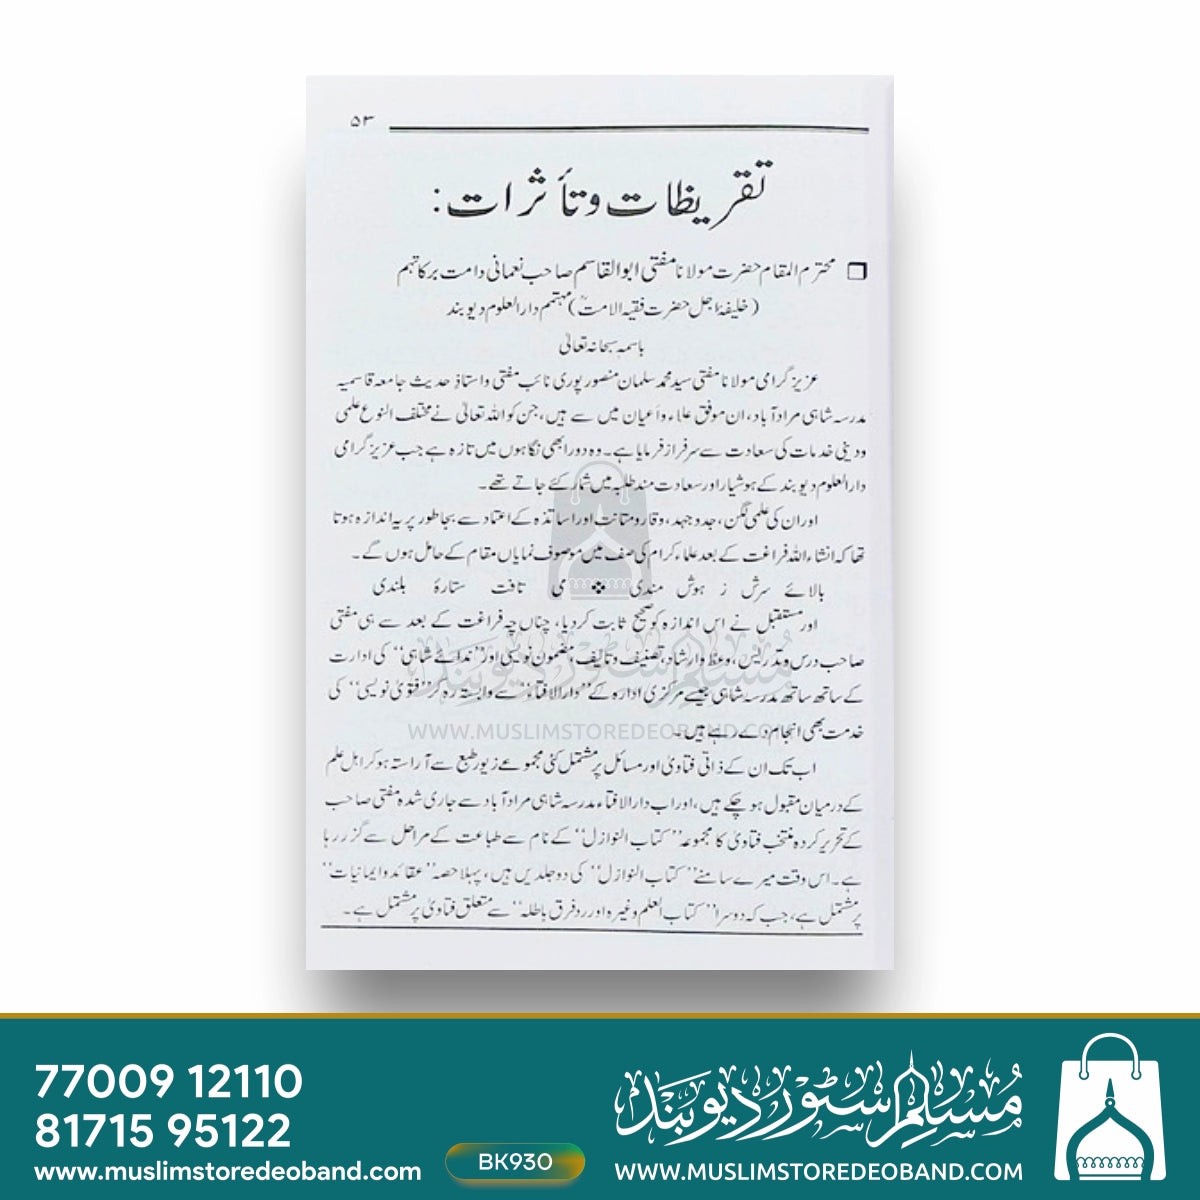 ۵۳
تقریظات وتأثرات:
❒ محترم المقام حضرت مولانا مفتی ابوالقاسم صاحب نعمانی دامت برکاتہم
(خلیفۂ اجل حضرت فقیہ الامتؒ) مہتمم دارالعلوم دیوبند
باسمہٖ سبحانہ تعالیٰ
عزیز گرامی مولانا مفتی سید محمد سلمان منصورپوری نائب مفتی واستاذِ حدیث جامعہ قاسمیہ
مدرسہ شاہی مرادآباد، ان موفق علماء واعیان میں سے ہیں، جن کو اللہ تعالیٰ نے مختلف النوع علمی
ودینی خدمات کی سعادت سے سرفراز فرمایا ہے۔ وہ دور ابھی نگاہوں میں تازہ ہے جب عزیز گرامی
دارالعلوم دیوبند کے ہوشیار اور سعادت مند طلبہ میں شمار کئے جاتے تھے۔
اور ان کی علمی لگن، جدوجہد، وقار ومتانت اور اساتذہ کے اعتماد سے بجا طور پر یہ اندازہ ہوتا
تھا کہ انشاء اللہ فراغت کے بعد علماء کرام کی صف میں موصوف نمایاں مقام کے حامل ہوں گے۔
بالائے سرش ز ہوش مندی ❖ می تافت ستارۂ بلندی
اور مستقبل نے اس اندازہ کو صحیح ثابت کردیا، چناں چہ فراغت کے بعد سے ہی مفتی
صاحب درس وتدریس، وعظ وارشاد، تصنیف وتالیف، مضمون نویسی اور ’’ندائے شاہی‘‘ کی ادارت
کے ساتھ ساتھ مدرسہ شاہی جیسے مرکزی ادارہ کے ’’دارالافتاء‘‘ سے وابستہ رہ کر ’’فتویٰ نویسی‘‘ کی
خدمت بھی انجام دے رہے ہیں۔
اب تک ان کے ذاتی فتاویٰ اور مسائل پر مشتمل کئی مجموعے زیور طبع سے آراستہ ہوکر اہل علم
کے درمیان مقبول ہوچکے ہیں، اور اب دارالافتاء مدرسہ شاہی مرادآباد سے جاری شدہ مفتی صاحب
کے تحریر کردہ منتخب فتاویٰ کا مجموعہ ’’کتاب النوازل‘‘ کے نام سے طباعت کے مراحل سے گزر رہا
ہے۔ اس وقت میرے سامنے ’’کتاب النوازل‘‘ کی دو جلدیں ہیں، پہلا حصہ ’’عقائد وایمانیات‘‘
پر مشتمل ہے، جب کہ دوسرا ’’کتاب العلم وغیرہ اور رد فرق باطلہ‘‘ سے متعلق فتاویٰ پر مشتمل ہے۔
مسلم سٹور دیوبند
WWW.MUSLIMSTOREDEOBAND.COM
77009 12110
81715 95122
www.muslimstoredeoband.com
BK930
مسلم سٹور دیوبند
WWW.MUSLIMSTOREDEOBAND.COM